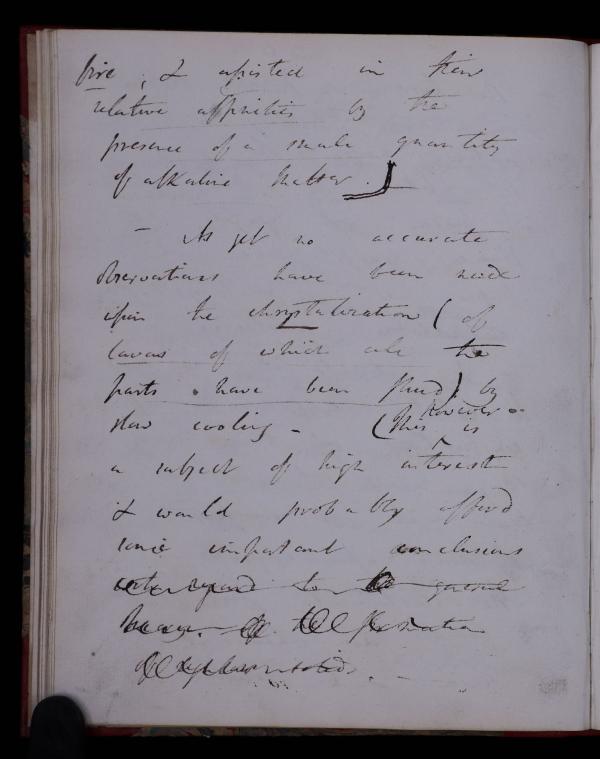 fire; & assisted in their
relative affinities by the
presence of a small quantity
of alkaline matter.]
- As yet no accurate
observations have been made
upon the chrystalization (of
lavas of which all the
parts have been fluid) by
slow cooling - (This however is
a subject of high interest
& would probably afford
some important conclusions
with regard to the general
theory of the formation
of